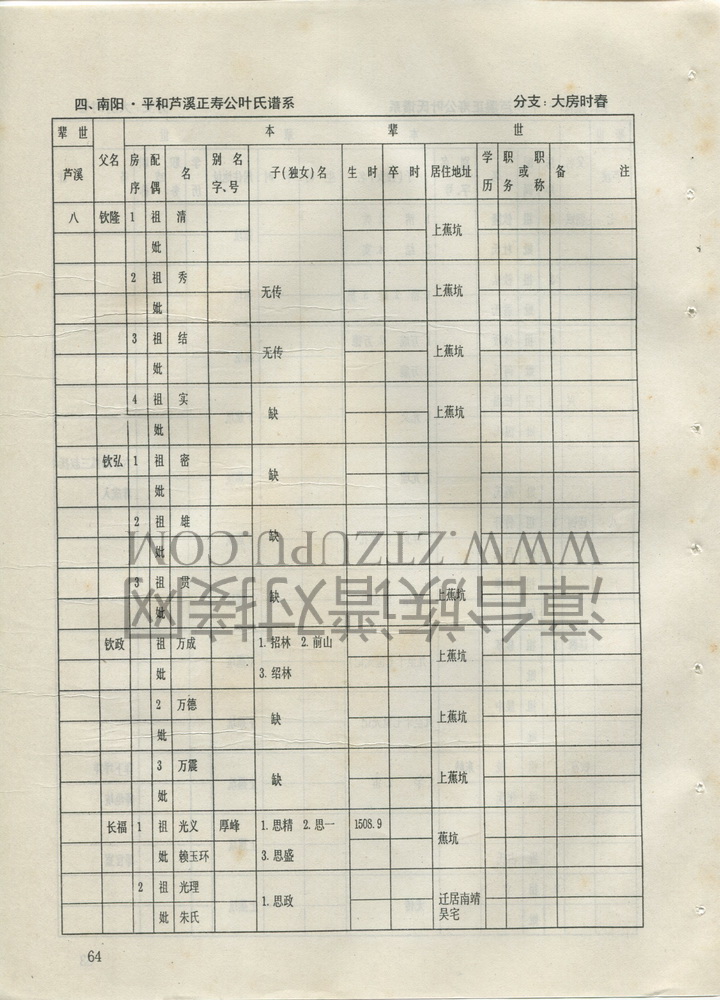 四、南阳·平和芦溪正寿公叶氏谱系 分支：大房时春
辈世 本辈世
芦溪 父名 房序 配偶 名 别名字、号 子(独女)名 生时 卒时 居住地址 学历 职务或职称 备注
八 钦隆 1 祖 清 上蕉坑
妣
2 祖 秀 无传 上蕉坑
妣
3 祖 结 无传 上蕉坑
妣
4 祖 实 缺 上蕉坑
妣
钦弘 1 祖 密 缺
妣
2 祖 雄 缺
妣
3 祖 贯 缺 上蕉坑
妣
钦政 祖 万成 1.招林 2.前山 上蕉坑
妣 3.绍林
2 祖 万德 缺 上蕉坑
妣
3 祖 万震 缺 上蕉坑
妣
长福 1 祖 光义 厚峰 1.思精 2.思一 1508.9 蕉坑
妣 赖玉环 3.思盛
2 祖 光理 1.思政 迁居南靖吴宅
妣 朱氏
64
WWW.ZTZUPU.COM
漳台族谱对接网